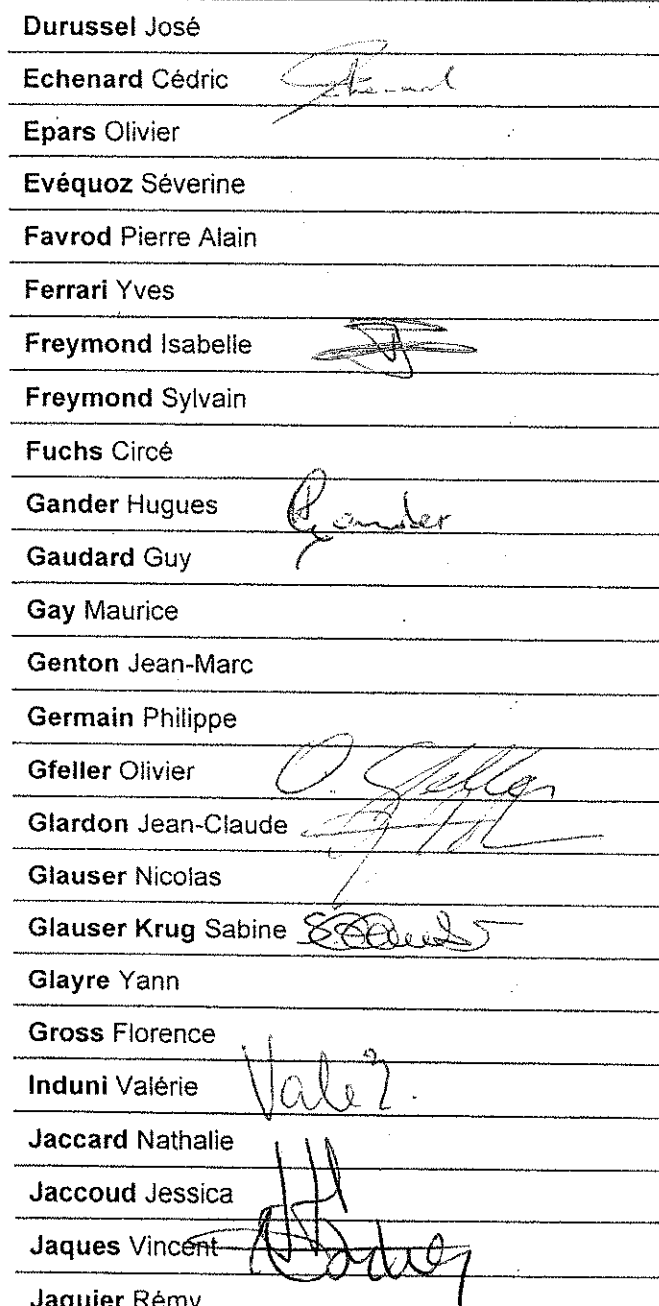 Durussel José
Echenard Cédric
Epars Olivier
Evéquoz Séverine
Favrod Pierre Alain
Ferrari Yves
Freymond Isabelle
Freymond Sylvain
Fuchs Circé
Gander Hugues Gander
Gaudard Guy
Gay Maurice
Genton Jean-Marc
Germain Philippe
Gfeller Olivier O. Gfeller
Glardon Jean-Claude
Glauser Nicolas
Glauser Krug Sabine
Glayre Yann
Gross Florence
Induni Valérie
Jaccard Nathalie
Jaccoud Jessica
Jaques Vincent
Jaquier Rémy